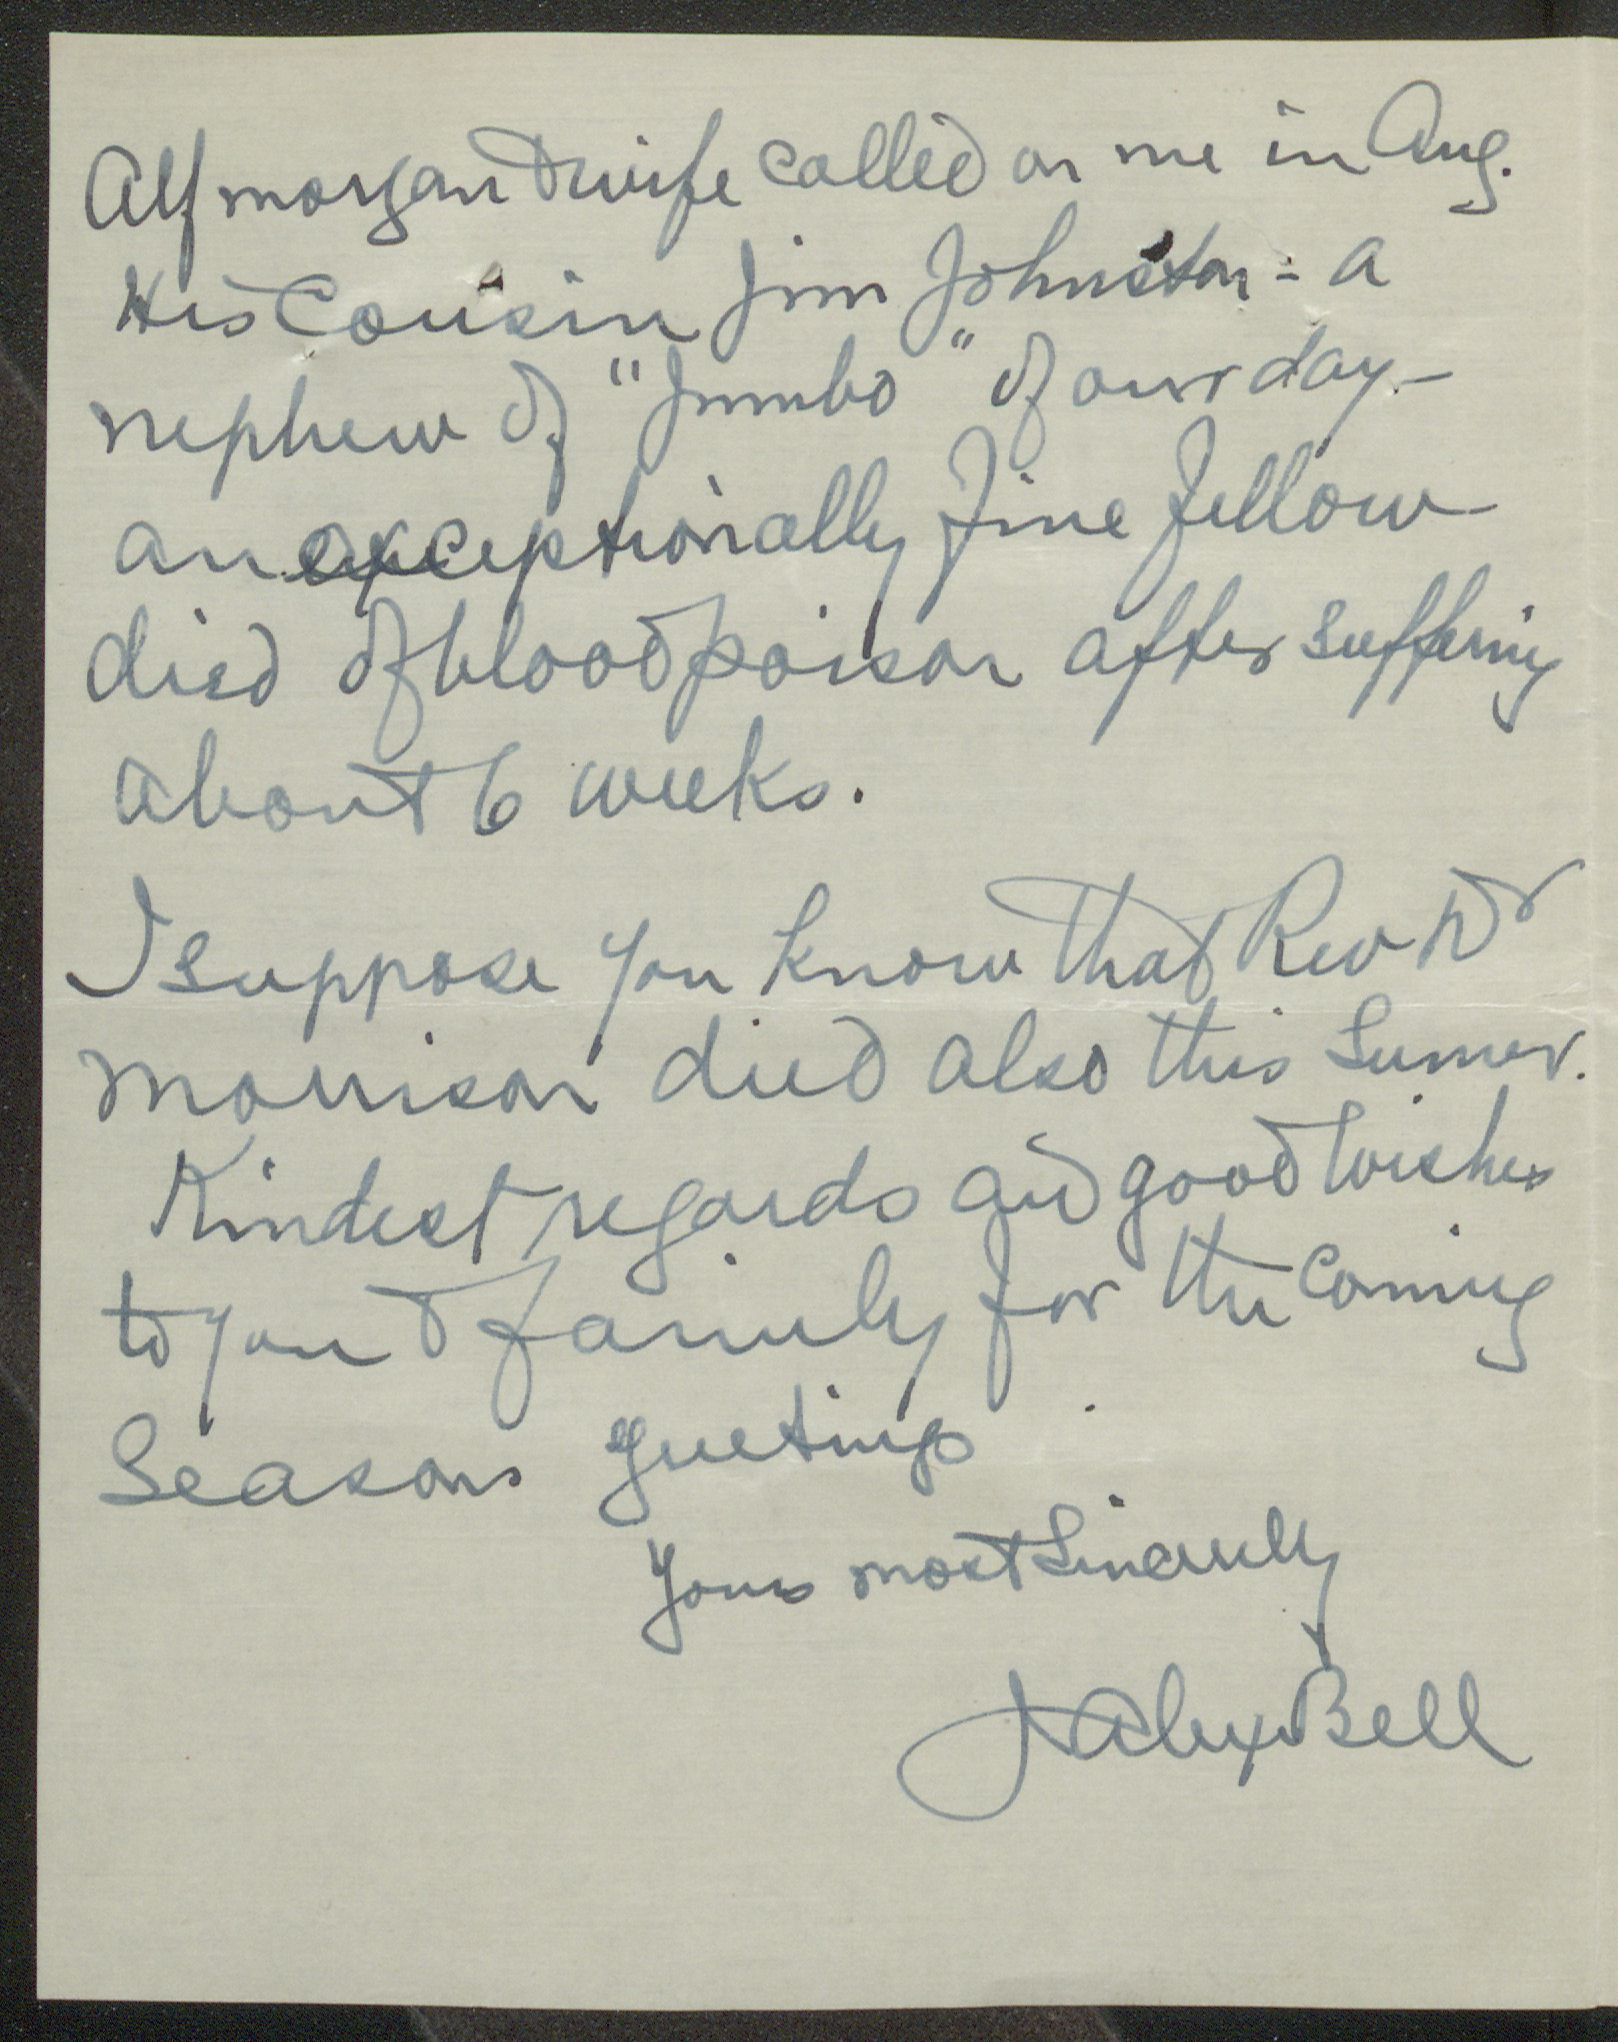 Alf Morgan & wife called on me in Aug.
His Cousin Jim Johnston - a
nephew of "Jumbo" of our day -
an exceptionally fine fellow
died of blood poison after suffering
about 6 weeks.
I suppose you know that Rev Dr
Morrison died also this Sumer.
Kindest regards and good wishes
to you & family for the coming
Seasons greetings
Yours most Sincerely
J Alex Bell